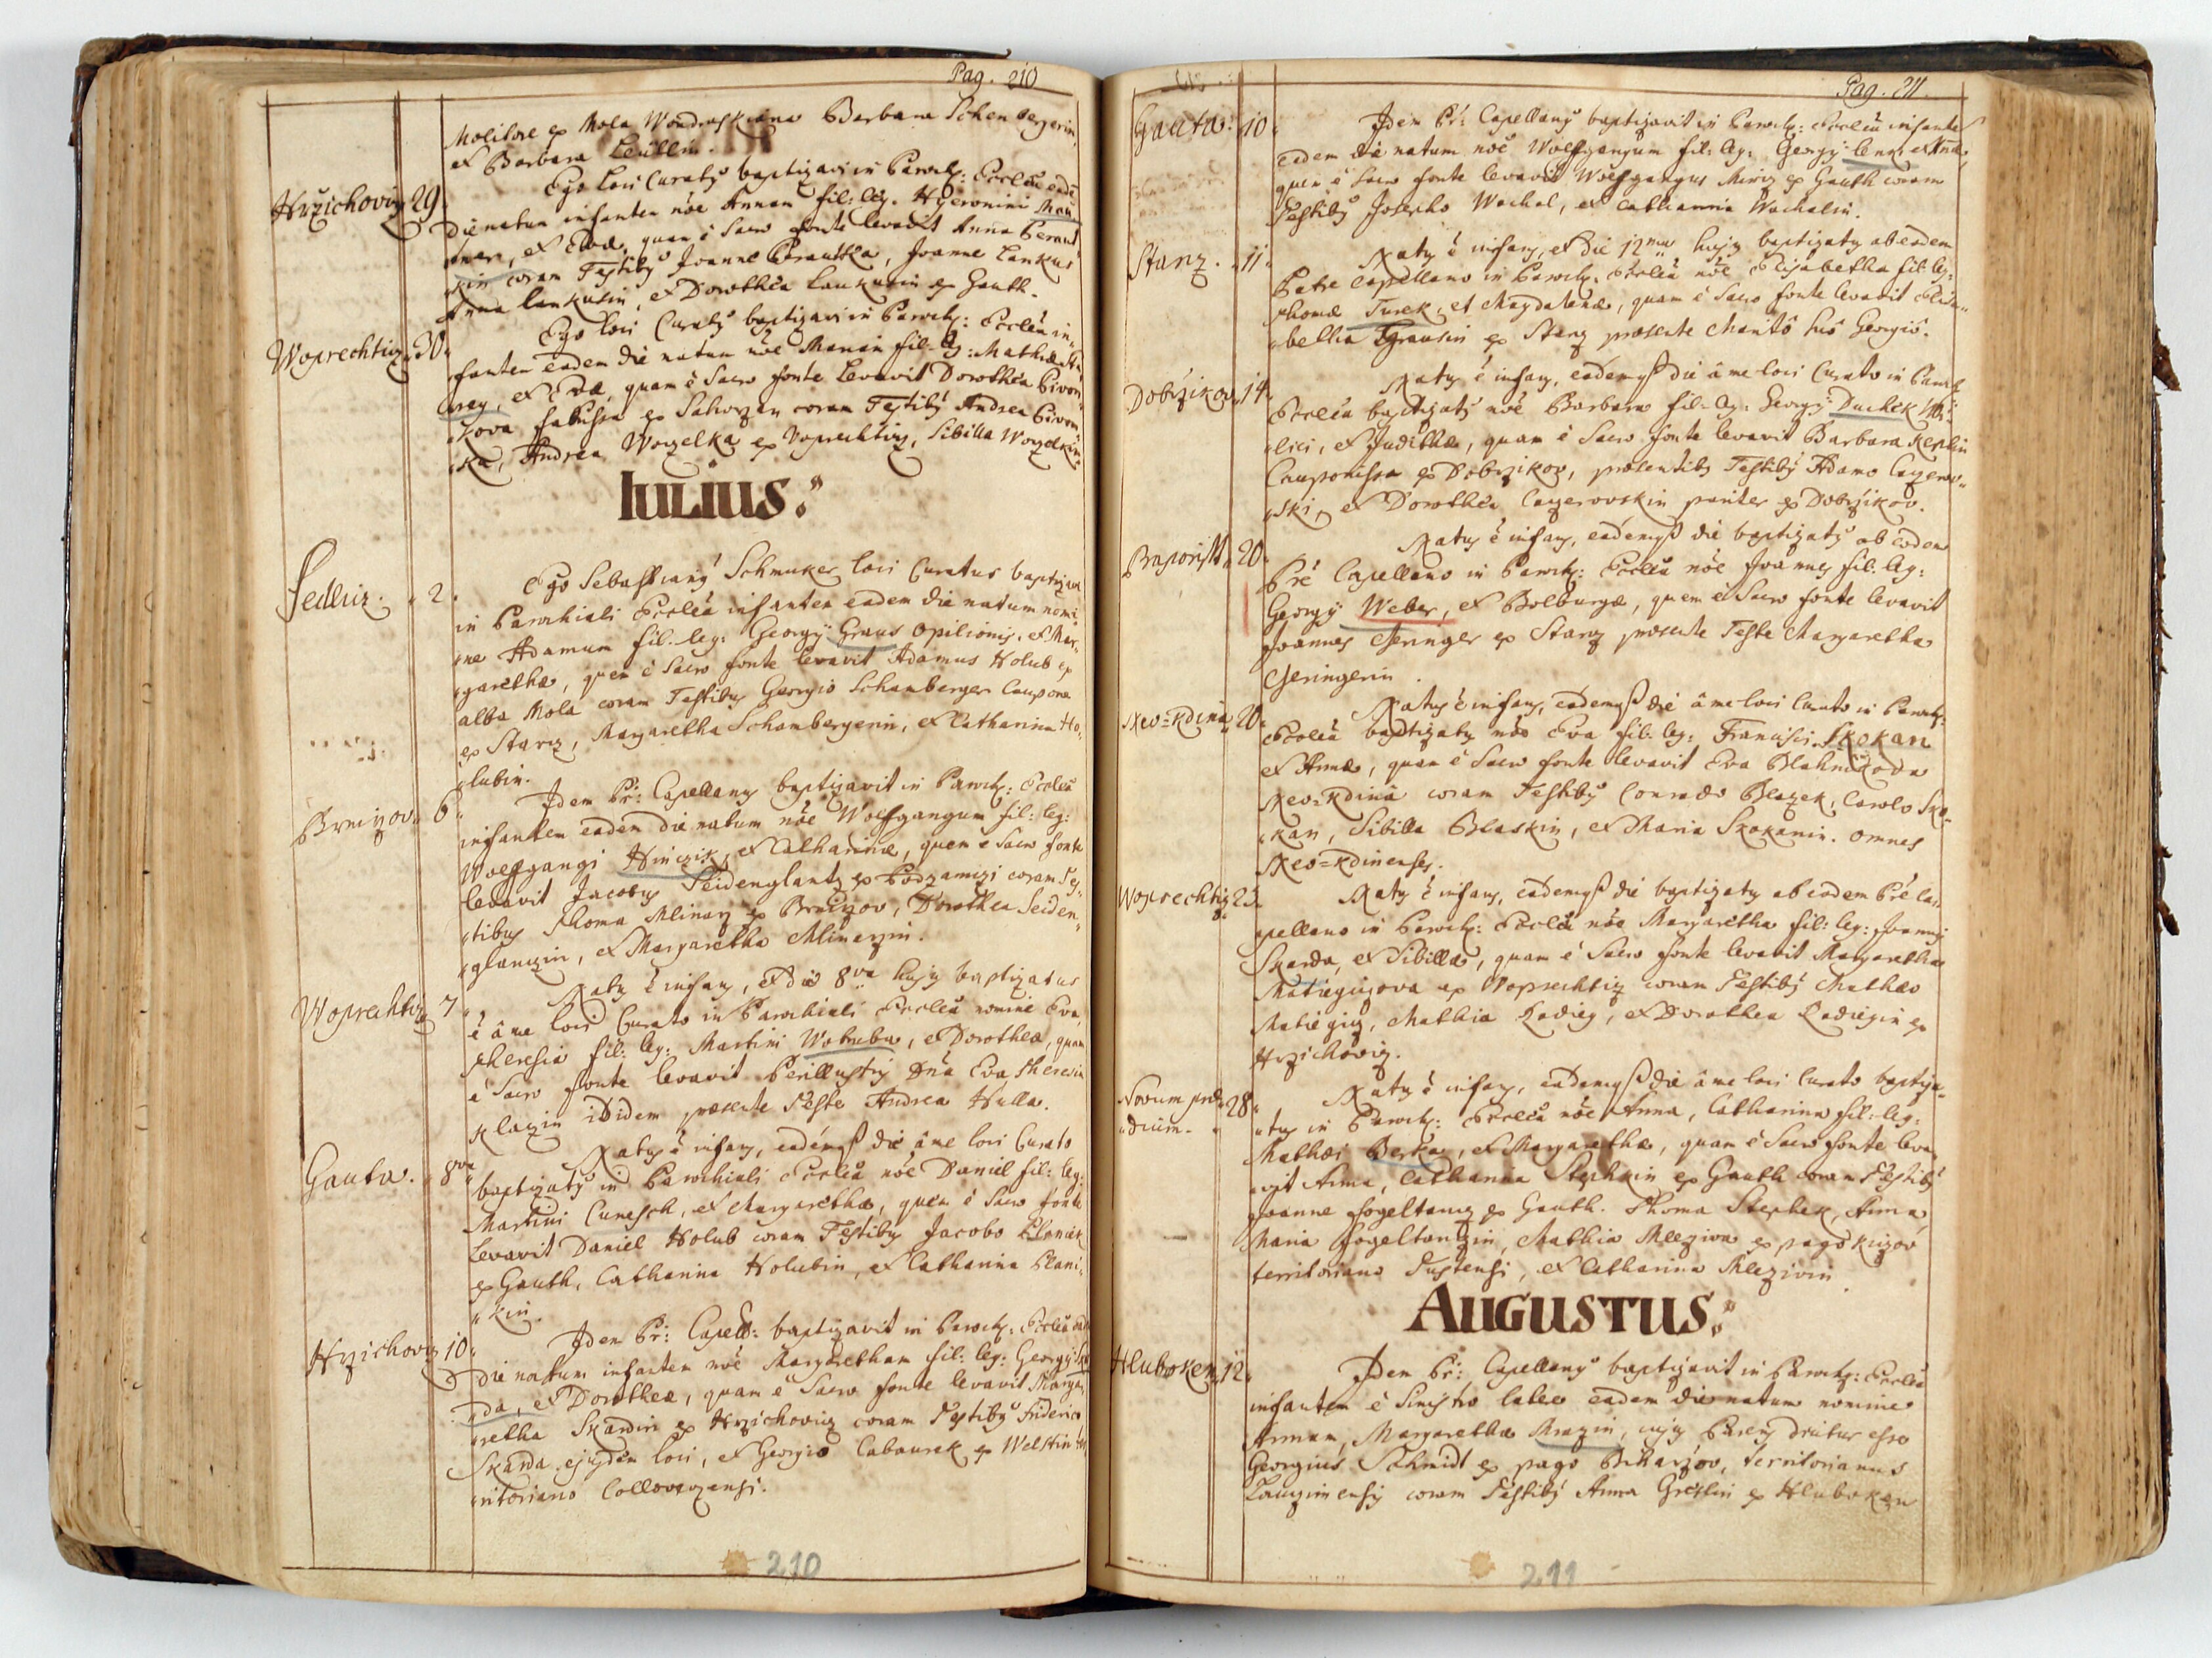 Pag. 210
Molitore ex Mola Wondraskiana Barbara Schenbergerin,
et Barbara Leüllin.
Hrzichoviz 29. Ego Loci Curatꝰ baptizavi in Paroch: Ecclia eadē
die natam infantem nōe Annam fil: leg. Hyeronimi
et Evæ, quam è Sacro fonte levavit Anna
coram Testibꝰ Joanne Joanne Lankus
Anna Lankusin, et Dorothea Lankusin ex Gauth.
Woprechtiz 30. Ego loci Curatꝰ baptizavi in Paroch: Ecclia in„
„fantem eadem die natam nōe Mariam fil: leg: Mathiæ
et Evæ, quam è Sacro fonte levavit Dorothea Pivon„
„kova ex coram Testibꝰ Andrea Pivon„
„ka, Andrea Worzelka ex Woprechtiz, Sibilla Worzelkin.
IULIUS.
Sedliz. 2. Ego Sebastianꝰ Schmuker loci Curatus baptizavi
in Parochiali Ecclia infantem eadem die natum nomi„
„ne Adamum fil: leg: Georgÿ Graus Opilionis, et Mar„
„garethæ, quem è Sacro fonte levavit Adamus Holub ex
alba Mola coram Testibus Georgio Schamberger Caupone
ex Stanz, Margaretha Schambergerin, et Catharina Ho„
„lubin.
Brnizov 6. Idem Pr: Capellanꝰ baptizavit in Paroch: Ecclia
infantem eadem die natum nōe Wolfgangum fil: leg:
Wolfgangi Hinczik, et Catharinæ, quem è Sacro fonte
levavit Jacobus Seidenglantz ex Podzamizi coram Tes„
„tibus Thoma Mlinarz ex Brnizov, Dorothea Seiden„
„glanzin, et Margaretha Mlinarzin.
Woprechtiz 7. Natꝰ ē infans, et die 8va hujꝰ baptizatus
ē â me loci Curato in Parochiali Ecclia nomine Eva,
Theresia fil: leg: Martini Wotruba, et Dorotheæ, quam
è Sacro fonte levavit Perillustris Dña Eva Theresia
Klazin ibidem præsente Teste Andrea Hulla.
Gauta. 8va Natꝰ ē infans, eademqꝫ die â me loci Curato
baptizatꝰ in Parochiali Ecclia nōe Daniel fil: leg:
Martini Cunesch, et Margarethæ, quem è Sacro fonte
levavit Daniel Holub coram Testibꝰ Jacobo Planiek
ex Gauth, Catharina Holubin, et Catharina Plani„
„kin.
Hrzichoviz 10. Idem Pr: Capell: baptizavit in Paroch: Ecclia eadē
die natam infantem nōe Margaretham fil: leg: Georgÿ Ska„
„da, et Dorotheæ, quam è Sacro fonte levavit Marga„
„retha Skardin ex Hrzichoviz coram Testibꝰ Friderico
Skarda ejusdem loci, et Georgio Cabaurek ex
„ritoriano
210
Pag. 211.
Gauta. 10. Idem Pr: Capellanꝰ baptizavit in Paroch: Ecclia infantem
eadem die natum nōe Wolfgangum fil: leg: Georgÿ Lenz, et Annæ,
quem è Sacro fonte levavit Wolfgangus ex Gauth coram
Testibꝰ Josepho Wachal, et Catharina Wachalin.
Stanz. 11. Natꝰ ē infans, et die 12ma hujꝰ baptizatꝰ ab eodem
Patre Capellano in Paroch: Ecclia nōe Elisabetha fil: leg:
Thomæ Turek, et Magdalenæ, quam è Sacro fonte levavit Elisa„
„betha ex Stanz præsente Marito suo Georgio.
Dobrzikov 14. Natꝰ ē infans, eademqꝫ die â me loci Curato in Paroch:
Ecclia baptizatꝰ nōe Barbara fil: leg: Georgÿ Duchek
„lici, et Judithæ, quam è Sacro fonte levavit Barbara
Cauponissa ex Dobrzikov, præsentibꝰ Testibꝰ Adamo Cazerov„
„ski, et Dorothea Cazerovskin pariter ex Dobrzikov.
20. Natꝰ ē infans, eademqꝫ die baptizatꝰ ab eodem
Pr̄e Capellano in Paroch: Ecclia nōe Joannes fil: leg:
Georgÿ Weber, et Wolburgæ, quem è Sacro fonte levavit
Joannes Geringer ex Stanz præsente Teste Margaretha
Geringerin.
Neo=Kdina 20. Natꝰ ē infans, eademqꝫ die â me loci Curato in Paroch:
Ecclia baptizatꝰ nōe Eva fil: leg: Francisci Skokan
et Annæ, quam è Sacro fonte levavit Eva
Neo=Kdina coram Testibꝰ Conrado Blazek, Carolo Sko„
„kan, Sibilla Blaskin, et Maria Skokanin. omnes
Neo=Kdinenses.
Woprechtiz 23. Natꝰ ē infans, eademqꝫ die baptizatꝰ ab eodem Pr̄e Ca„
„pellano in Paroch: Ecclia nōe Margaretha fil: leg: Joannis
Skarda, et Sibillæ, quam è Sacro fonte levavit Margaretha
Matiegizova ex Woprechtiz coram Testibꝰ Mathæo
Matiegiz, Mathia Radieg, et Dorothea Radiegin ex
Hrzichoviz.
Novum præ„ 28. Natꝰ ē infans, eademqꝫ die â me loci Curato baptiza„
„dium. „tus in Paroch: Ecclia nōe Anna, Catharina fil: leg:
Mathæi Berka, et Margarethæ, quam è Sacro fonte leva„
„vit Anna, Catharina Stephkin ex Gauth coram Testibꝰ
Joanne Fogeltanz ex Gauth. Thoma Stephek, Anna,
Maria Fogeltanzin, Mathia Mleziva ex pago
territoriano, et Catharina Mlezivin.
AUGUSTUS.
Hluboken, 12. Idem Pr: Capellanꝰ baptizavit in Paroch: Ecclia
infantem è Sinistro latere eadem die natum nomine
Annam, Margaretha Mrazin, cujꝰ Parens dicitur esse
Georgius Schmidt ex pago territorianus
coram Testibꝰ Anna ex Hluboken
211